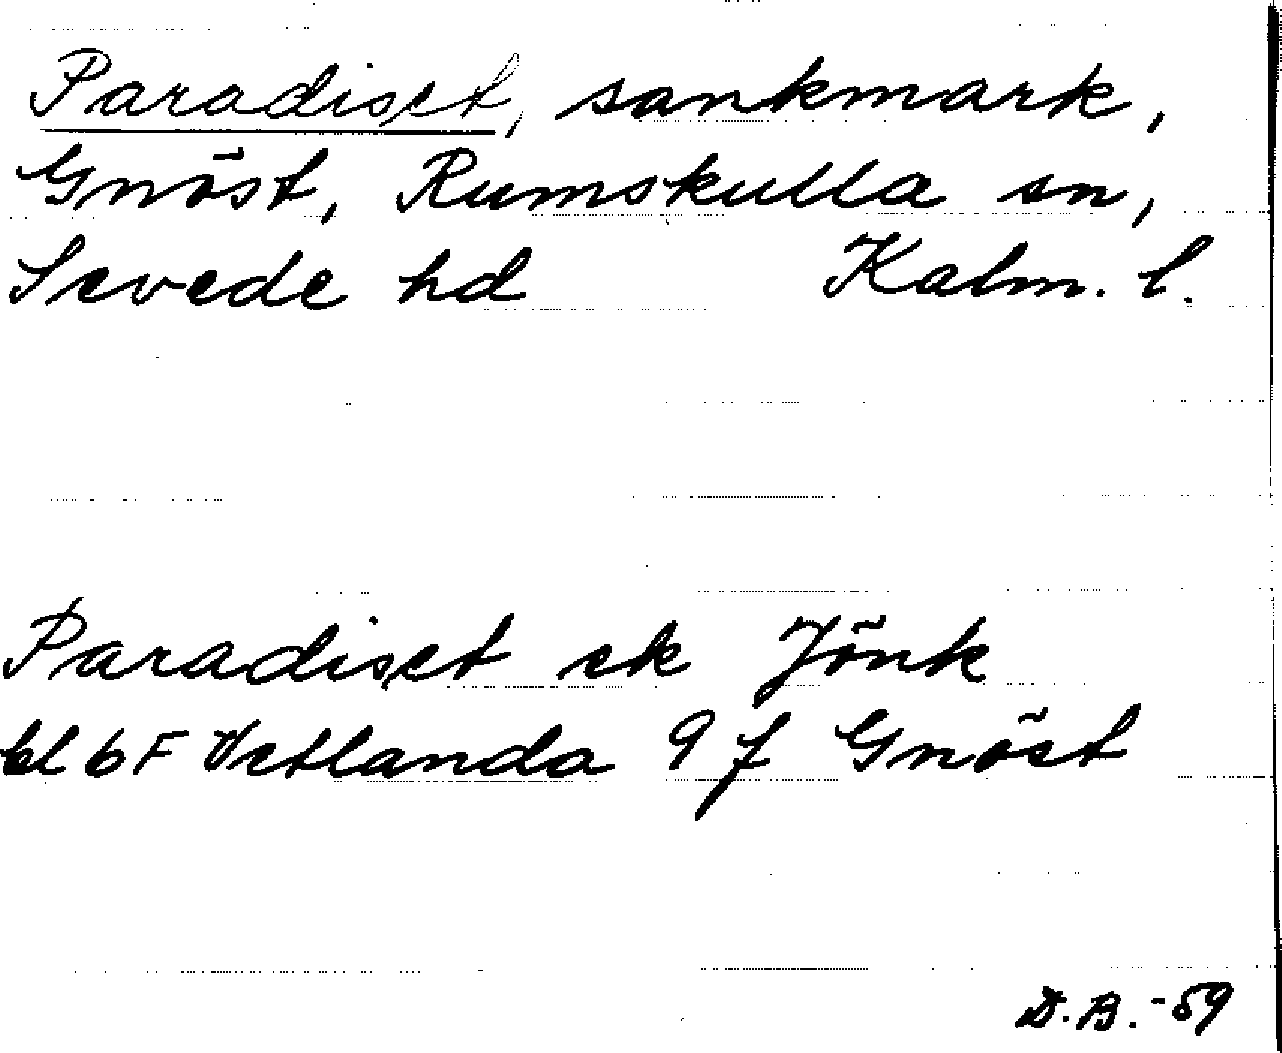 Paradiset, sankmark,
Gnöst, Rumskulla sn,
Sevede hd Kalm. l.
Paradiset ek Jönk
bl 6F Vetlanda 9 f Gnöst
D.B.-59